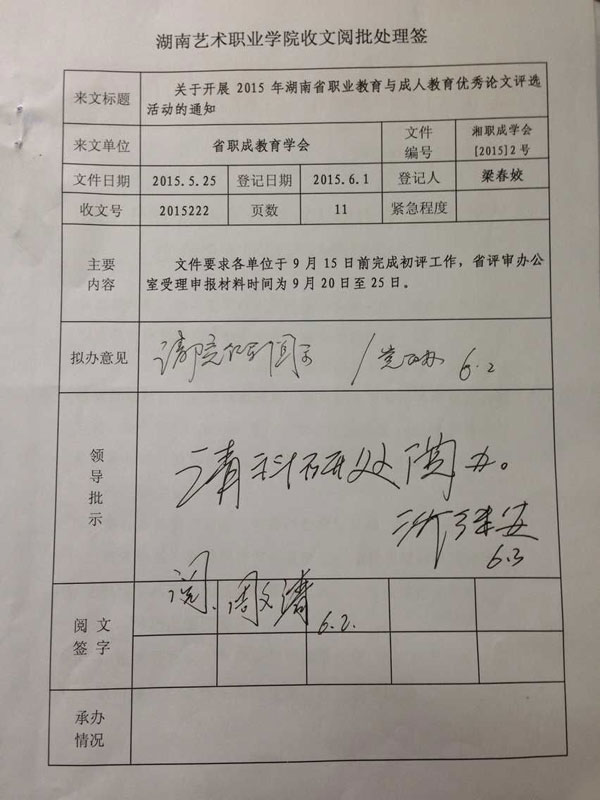 湖南艺术职业学院收文阅批处理签
来文标题
关于开展 2015 年湖南省职业教育与成人教育优秀论文评选
活动的通知
来文单位
省职成教育学会
文件
编号
湘职成学会
[2015]2 号
文件日期
2015.5.25
登记日期
2015.6.1
登记人
梁春姣
收文号
2015222
页数
11
紧急程度
主要
内容
文件要求各单位于 9 月 15 日前完成初评工作，省评审办公
室受理申报材料时间为 9 月 20 日至 25 日。
拟办意见
请院领导阅示 / 党政办 6.2
领
导
批
示
请科研处阅办。
6.3
阅 文
签 字
阅. 周文清 6.2.
承办
情况